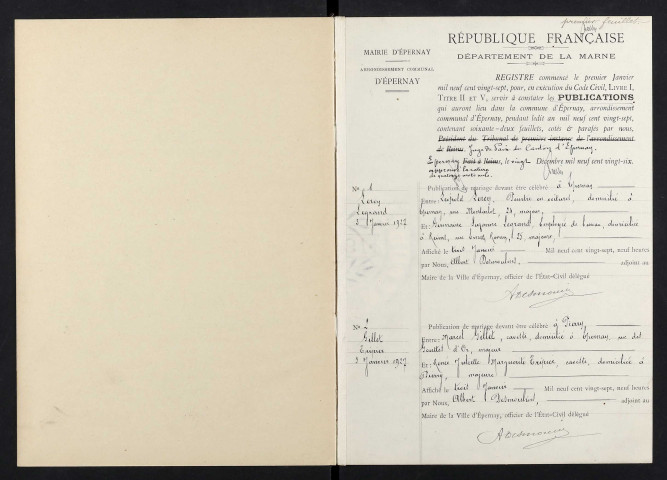 premier feuillet
RÉPUBLIQUE FRANÇAISE
MAIRIE D'ÉPERNAY
DÉPARTEMENT DE LA MARNE
ARRONDISSEMENT COMMUNAL
D'ÉPERNAY
REGISTRE commencé le premier Janvier
mil neuf cent vingt-sept, pour, en exécution du Code Civil, LIVRE I,
TITRE II ET V, servir à constater les PUBLICATIONS
qui auront lieu dans la commune d'Épernay, arrondissement
communal d'Épernay, pendant ledit an mil neuf cent vingt-sept,
contenant soixante-deux feuillets, cotés & parafés par nous,
Président du Tribunal de première instance de l'arrondissement
de Reims, Juge de Paix du Canton d'Épernay.
Epernay Fait à Reims, le vingt Décembre mil neuf cent vingt-six.
approuvé la rature
de quatorze mots nuls.
No. 1
Leroy
Legrand
2 Janvier 1927
Publication de mariage devant être célébré à Épernay
Entre: Léopold Leroy, domicilié à
Épernay, rue 25, majeur,
Et: Suzanne Legrand, Employée de domiciliée
à Reims, rue 25, majeure,
Affiché le trois Janvier Mil neuf cent vingt-sept, neuf heures
par Nous, Albert Desmoulins, adjoint au
Maire de la Ville d'Épernay, officier de l'État-Civil délégué
No. 2
Gillet
2 Janvier 1927
Publication de mariage devant être célébré à
Entre: Marcel Gillet, domicilié à Épernay, rue
d'Or, majeur
Et: Juliette Marguerite domiciliée à
majeure
Affiché le trois Janvier Mil neuf cent vingt-sept, neuf heures
par Nous, Albert Desmoulins, adjoint au
Maire de la Ville d'Épernay, officier de l'État-Civil délégué